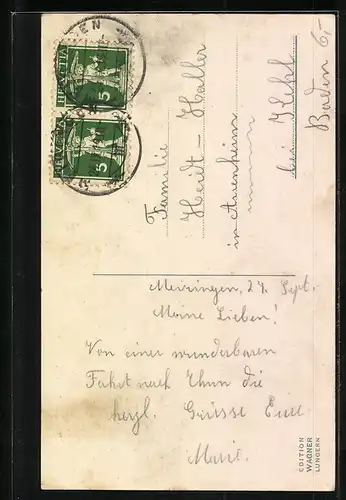 HELVETIA 5
HELVETIA 5
Familie
Heidt-Haller
in Auenheim
bei Kehl
Baden
6,-
Meiringen, 24. Sept.
Meine Lieben!
Von einer wunderbaren
Fahrt nach Thun die
herzl. Grüsse Eure
Marie.
EDITION
WAGNER
LUNGERN